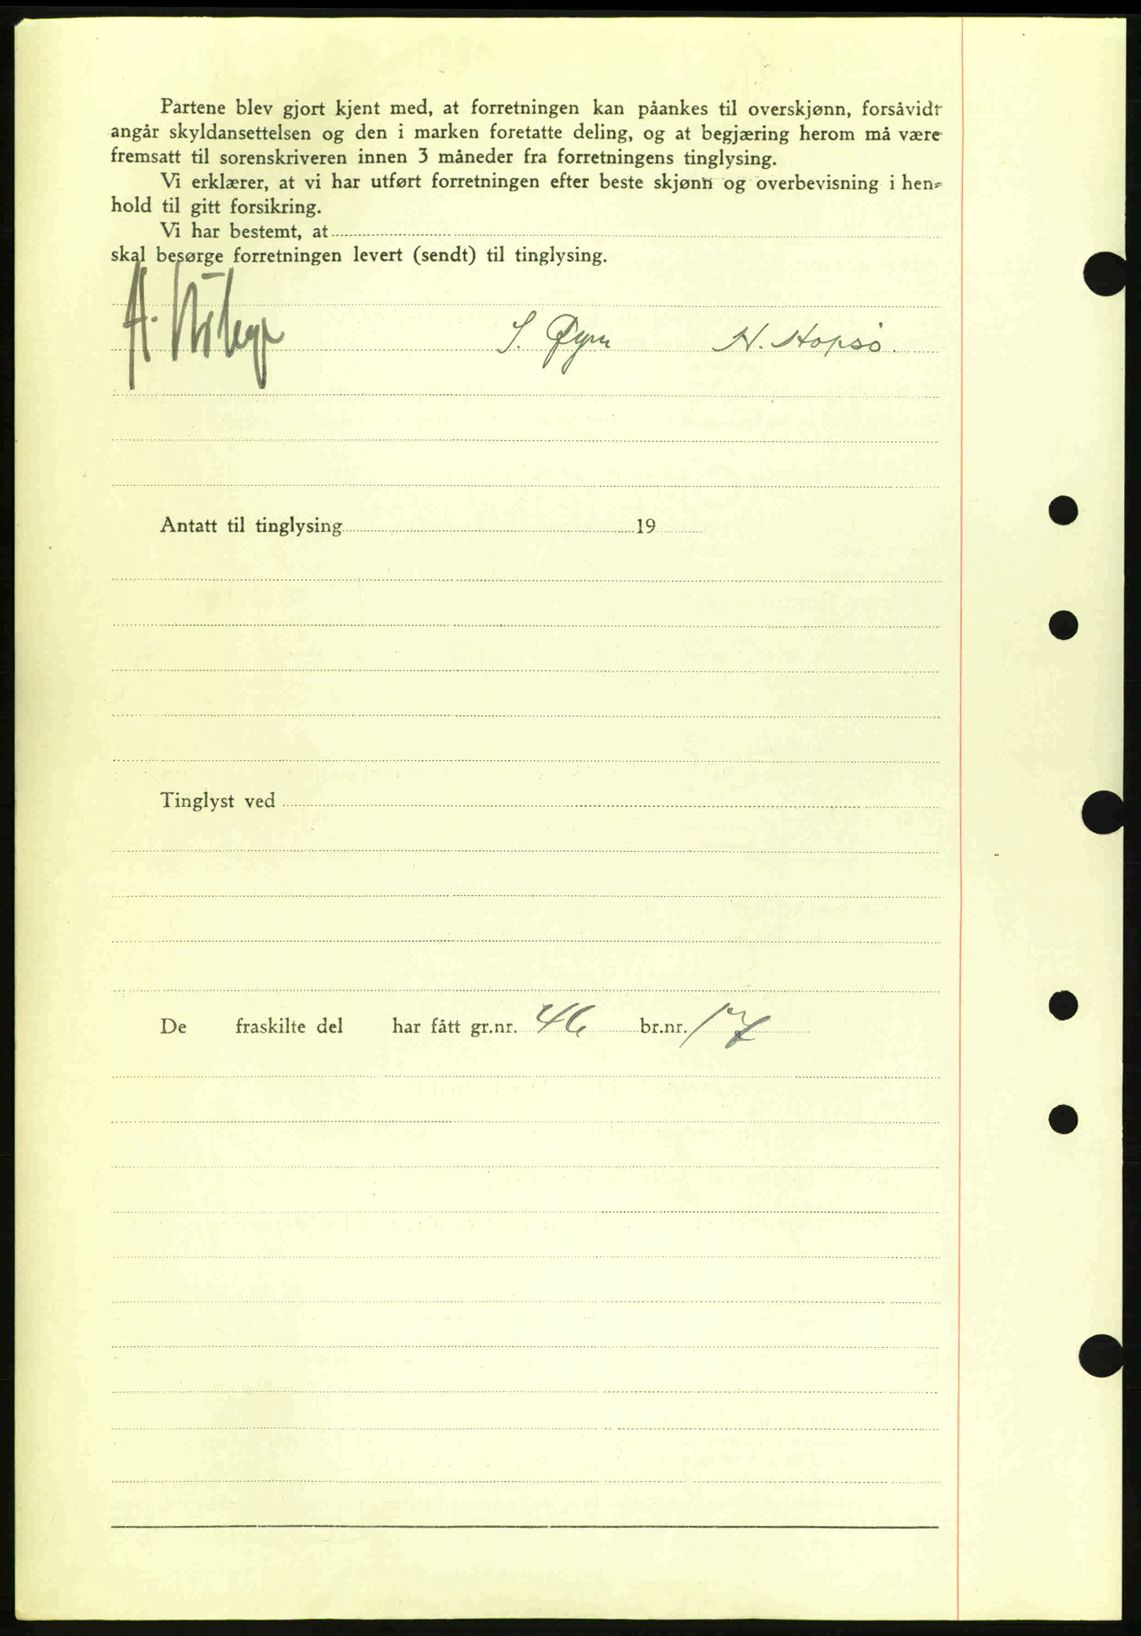 Partene blev gjort kjent med, at forretningen kan påankes til overskjønn, forsåvidt
angår skyldansettelsen og den i marken foretatte deling, og at begjæring herom må være
fremsatt til sorenskriveren innen 3 måneder fra forretningens tinglysing.
Vi erklærer, at vi har utført forretningen efter beste skjønn og overbevisning i hen-
hold til gitt forsikring.
Vi har bestemt, at
skal besørge forretningen levert (sendt) til tinglysing.
A. S. Øyen H. Hopsø.
Antatt til tinglysing 19
Tinglyst ved
De fraskilte del har fått gr.nr. 46 br.nr. 17